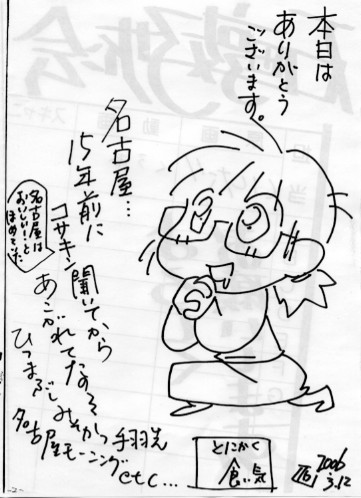 本日は
ありがとう
ございます。
名古屋…
15年前に
コサキン聞いてから
あこがれてたのよ
名古屋は
おいしい!…と
ほめていた
ひつまぶし みそかつ 手羽先
名古屋モーニング
etc…
とにかく
食い気
2006
3.12